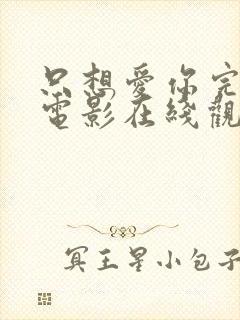 只想愛你完
電影在綫觀
冥王星小包子